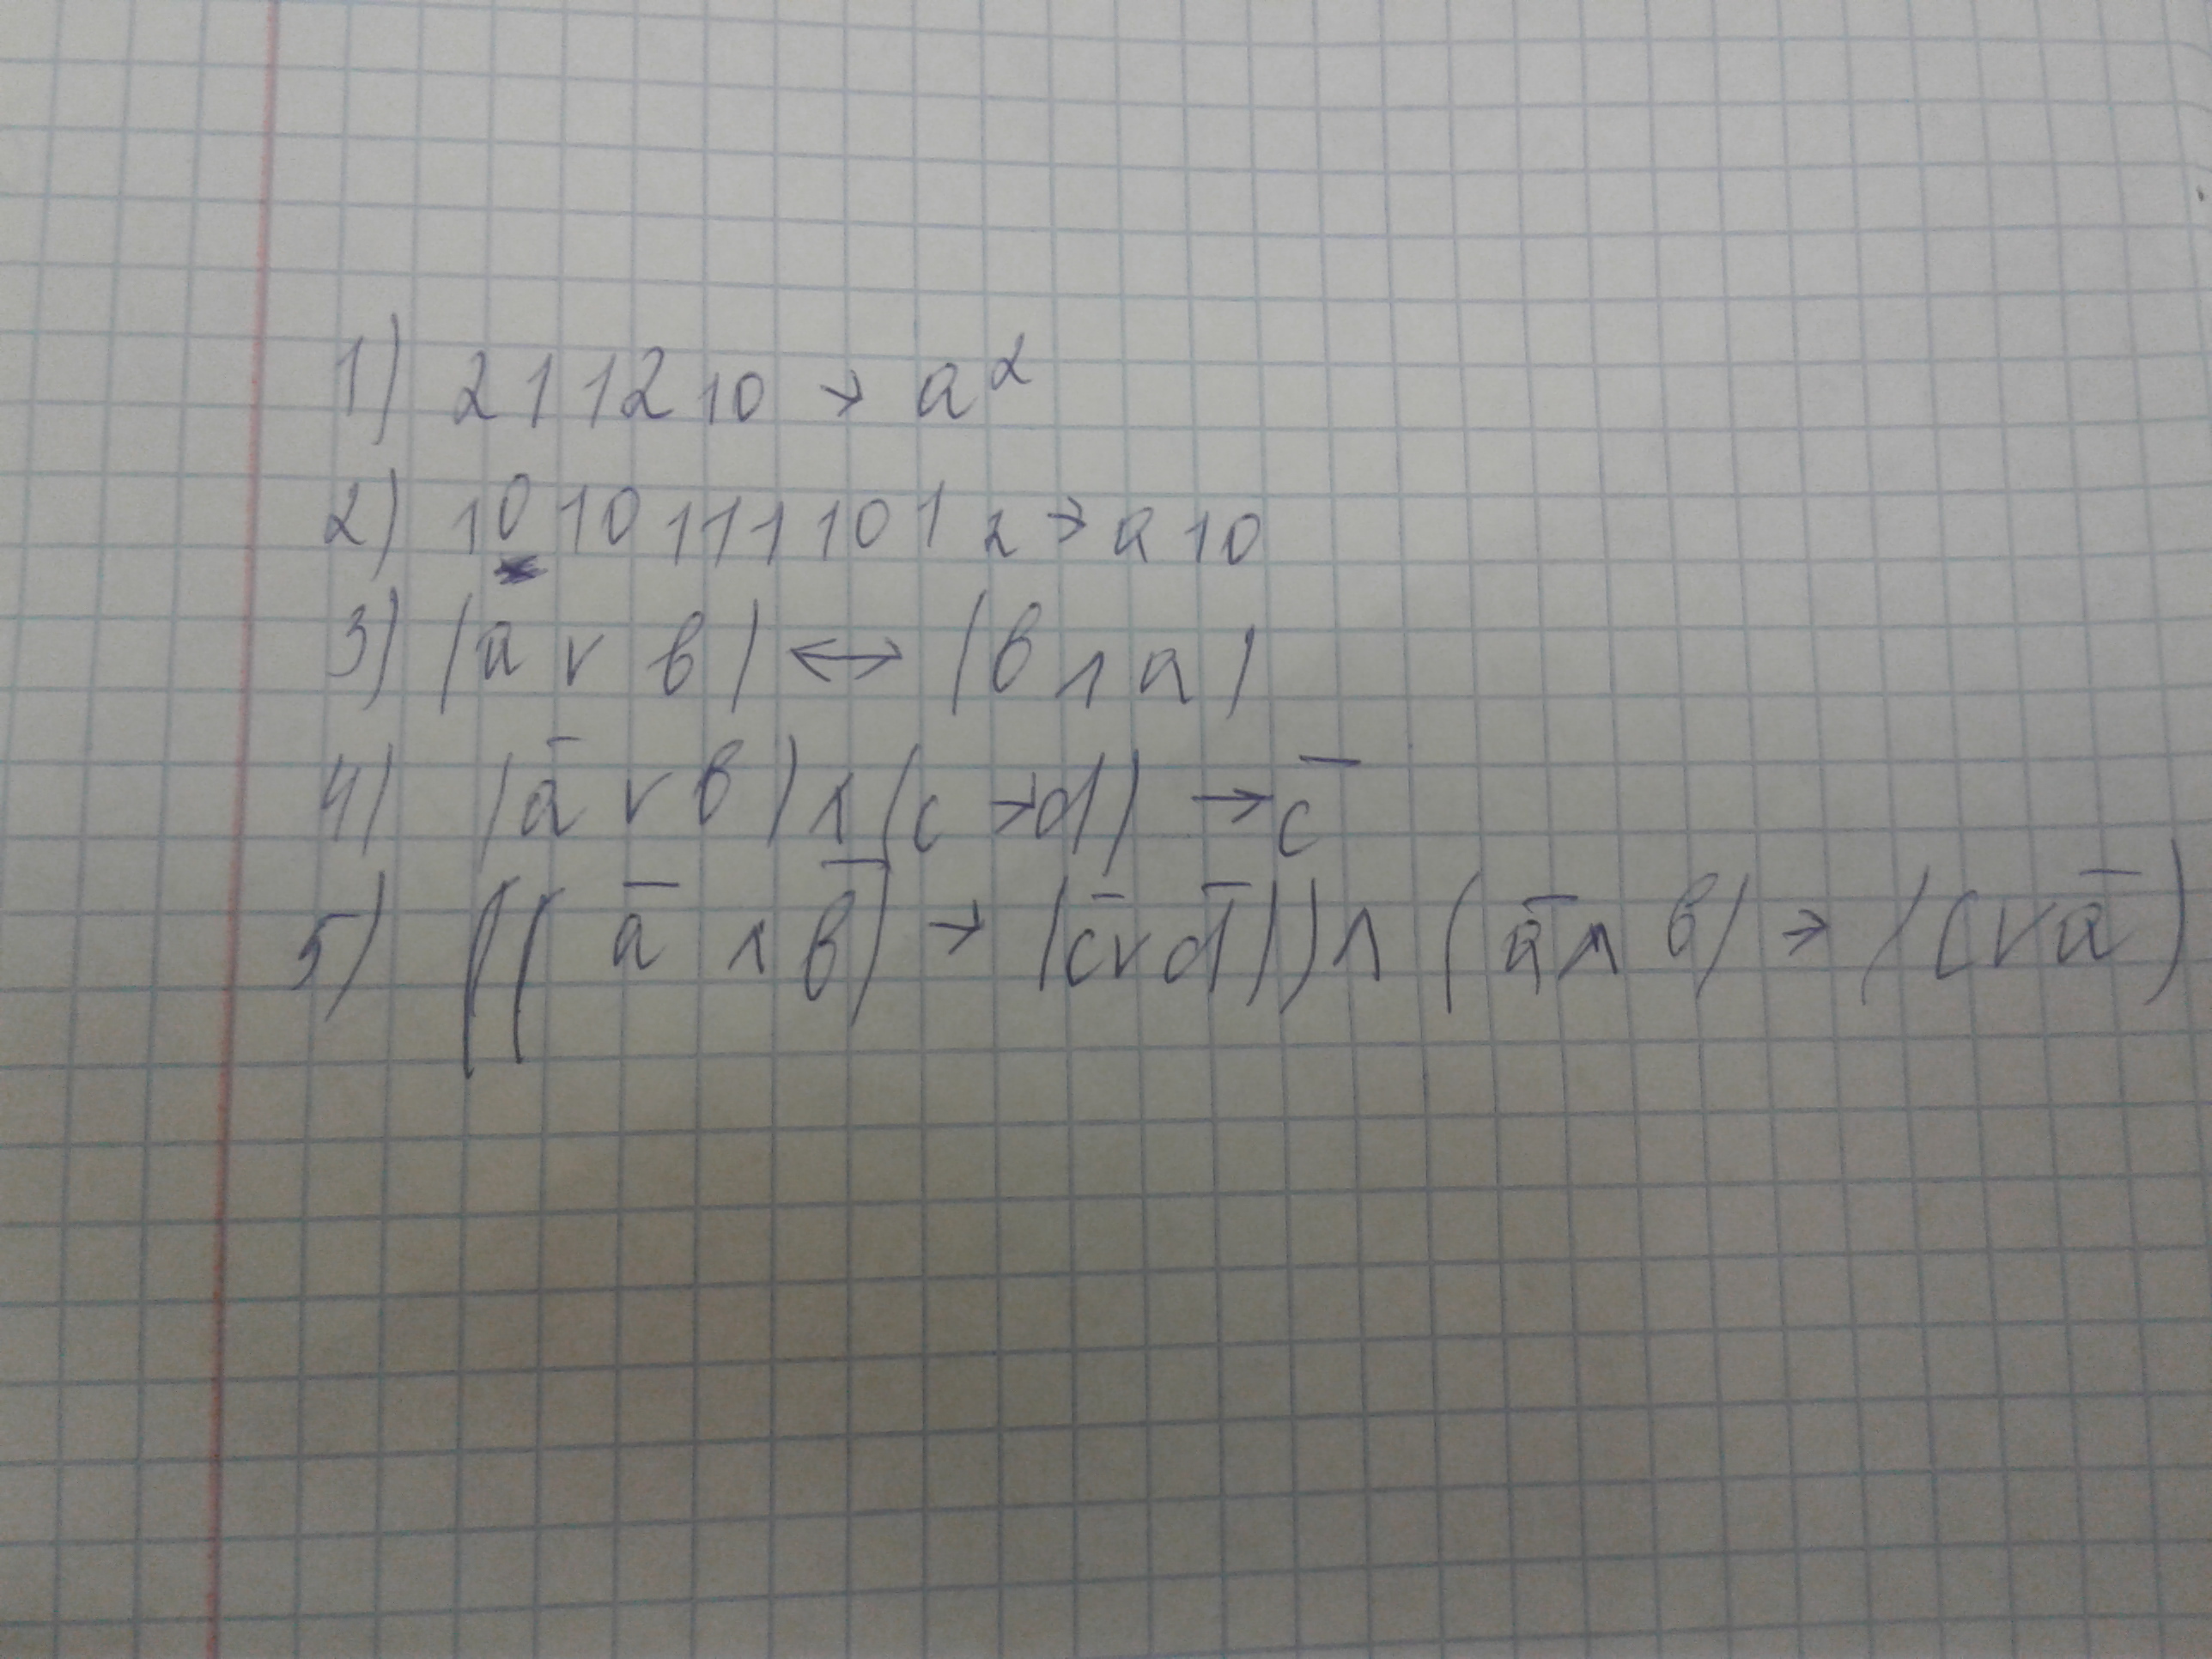 1) 2112 10 → a²
2) 1010111101 2 → a 10
3) (a v в) ↔ (в ∧ a)
4) (a̅ v в) ∧ (c → d) → c̅
5) ((a̅ ∧ в̅) → (c̅ v d̅)) ∧ (a̅ ∧ в) → (c v a̅)